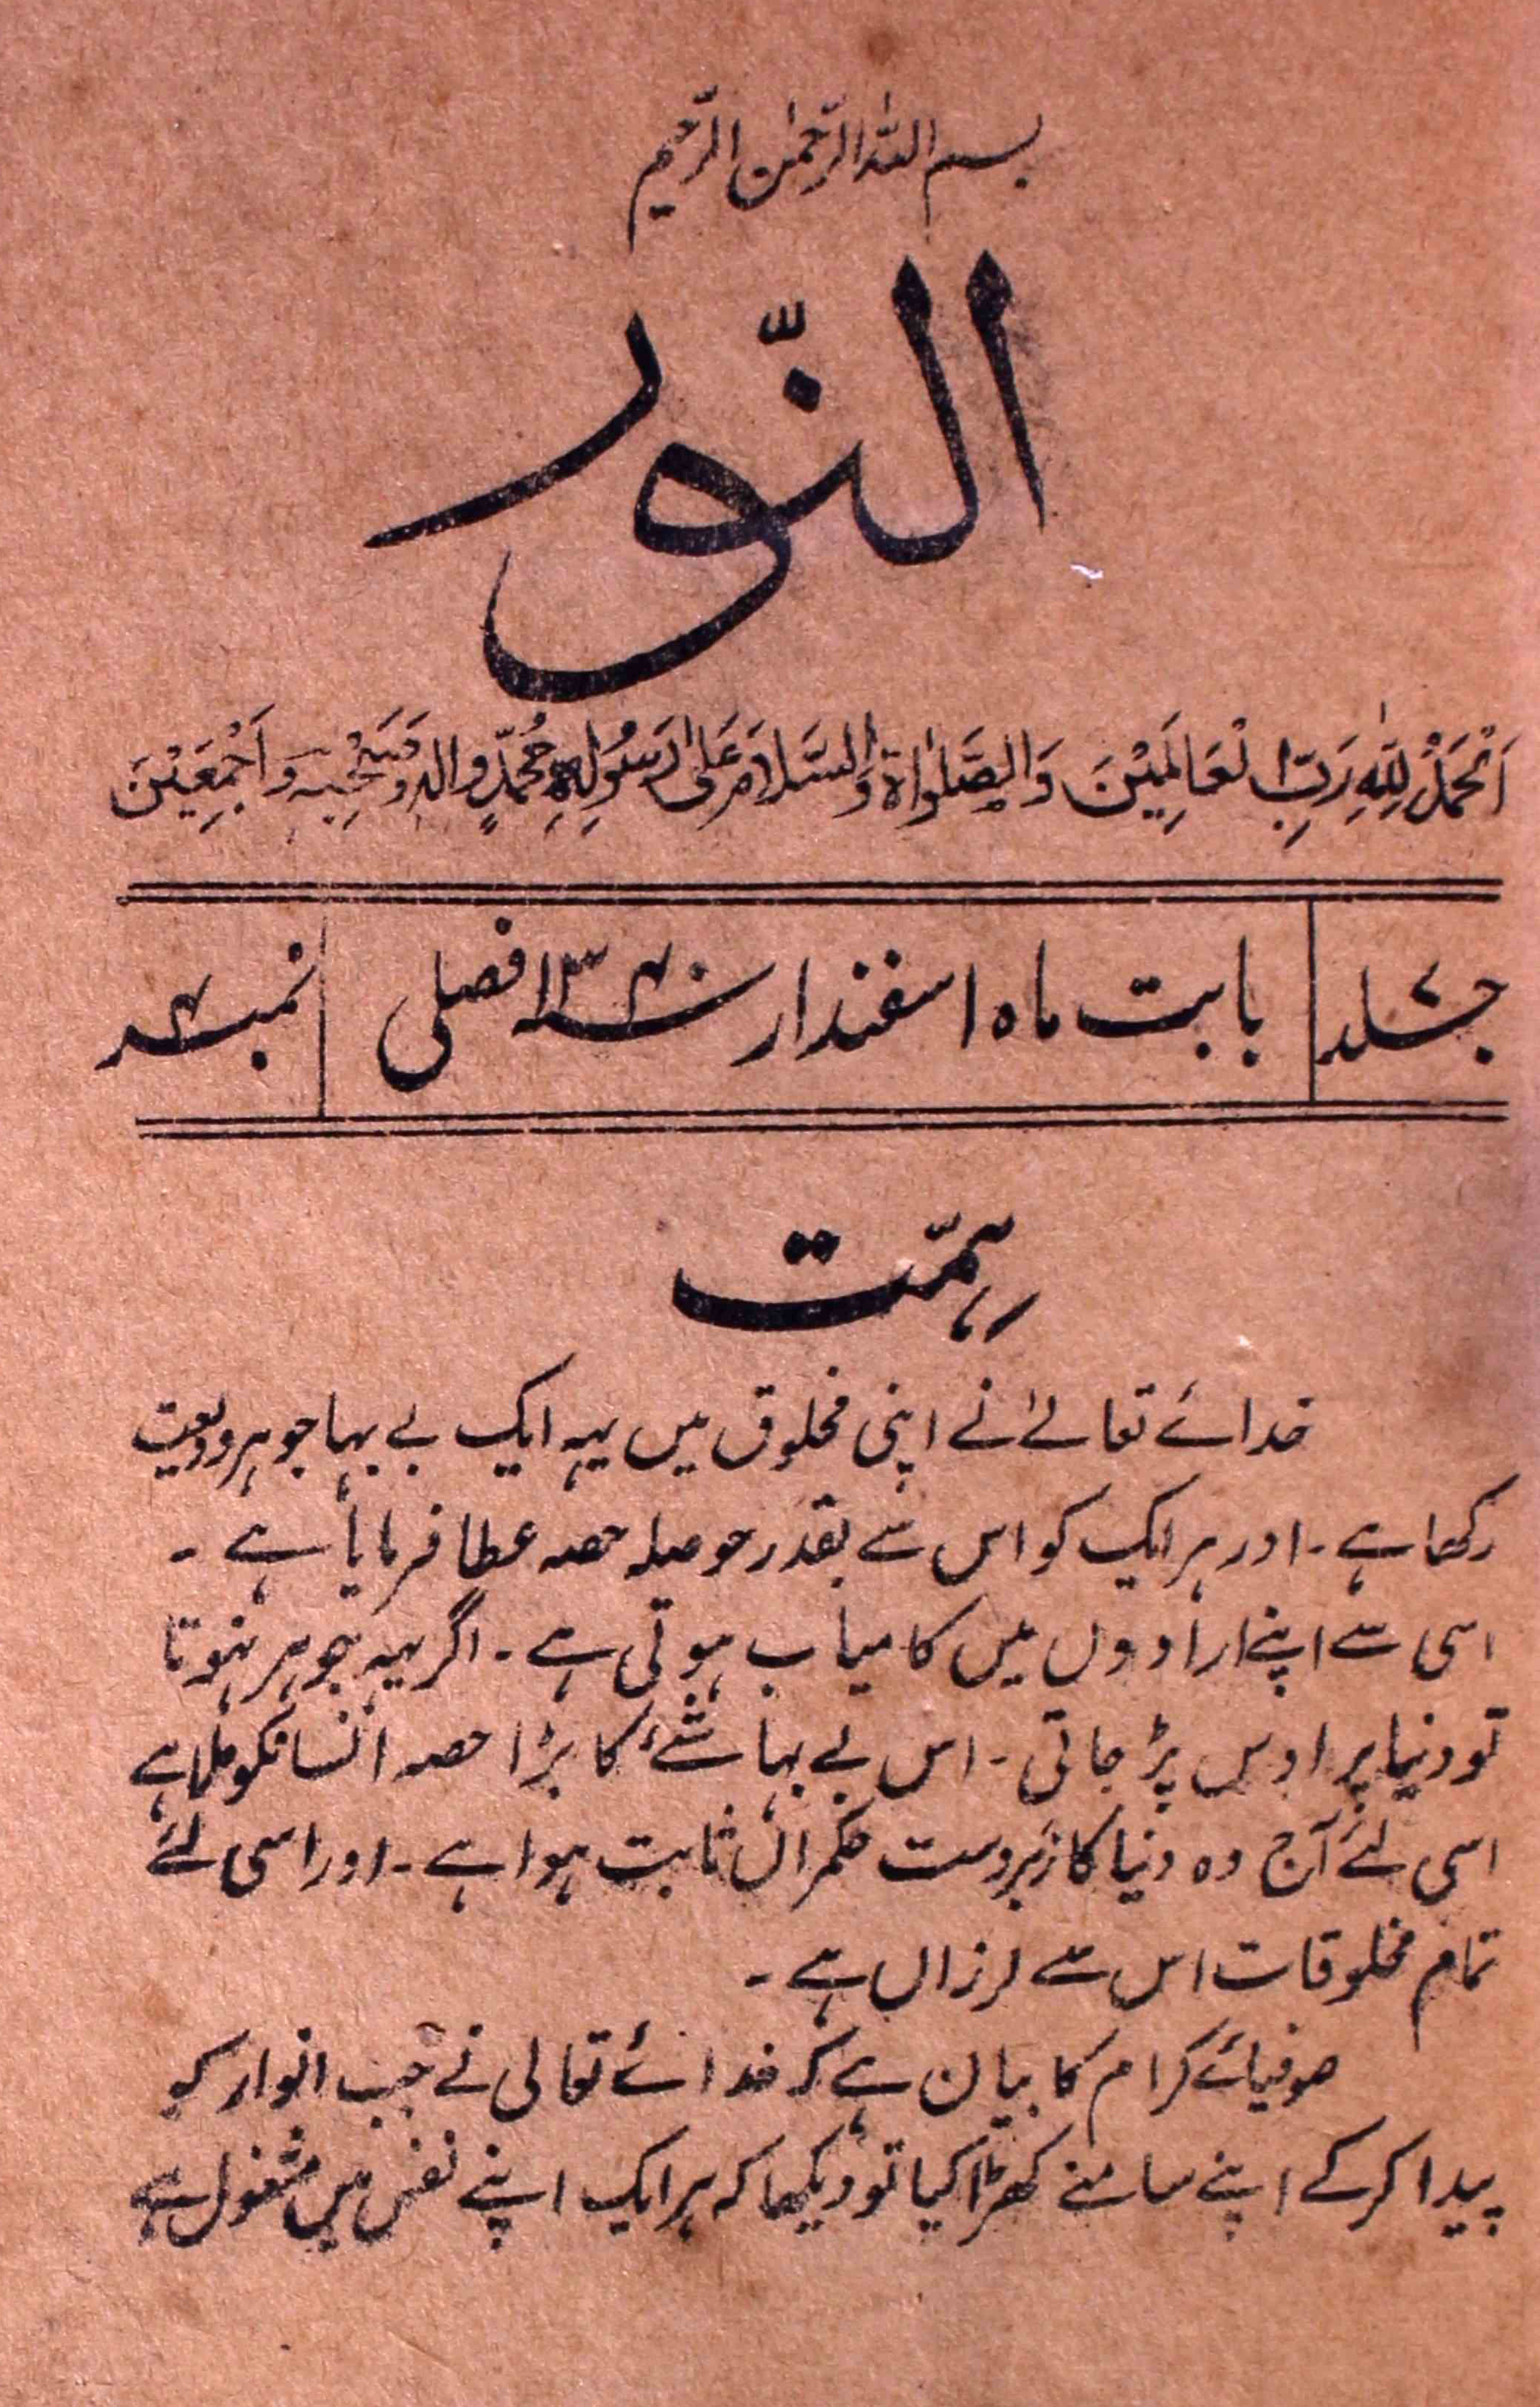 بسم اللہ الرحمٰن الرحیم
النّور
اَلْحَمْدُ لِلّٰہِ رَبِّ الْعَالَمِیْنَ وَالصَّلوٰاۃُ وَالسَّلَامُ عَلیٰ رَسُوْلِہٖ مُحَمَّدٍ وَّاٰلِہٖ وَصَحْبِہٖ وَاَجْمَعِیْنَ
جلد ۷
بابت ماہ اسفندار سنہ ۱۳۴۰ فصلی
نمبر ۴
ہمّت
خدائے تعالےٰ نے اپنی مخلوق میں یہہ ایک بے بہا جوہر ودیعت
رکھا ہے ۔ اور ہر ایک کو اس سے بقدر حوصلہ حصہ عطا فرمایا ہے ۔
اسی سے اپنے ارادوں میں کامیاب ہوتی ہے ۔ اگر یہہ جوہر نہوتا
تو دنیا پر اوس پڑ جاتی ۔ اس بے بہا شئے کا بڑا حصہ انسانکو ملا ہے
اسی لئے آج وہ دنیا کا زبردست حکمراں ثابت ہوا ہے ۔ اور اسی لئے
تمام مخلوقات اس سے لرزاں ہے ۔
صوفیائے کرام کا بیان ہے کہ خدائے تعالی نے جب انوار کو
پیدا کرکے اپنے سامنے کھڑا کیا تو دیکھا کہ ہر ایک اپنے نفس میں مشغول ہے